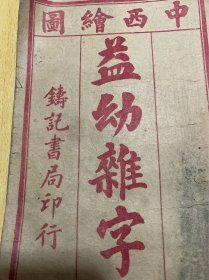 中西繪圖
益幼雜字
鑄記書局印行